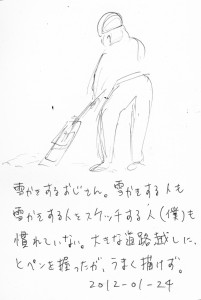 雪かきするおじさん。雪かきする人も
雪かきする人をスケッチする人(僕)も
慣れていない。大きな道路越しに、
とペンを握ったが、うまく描けず。
2012-01-24